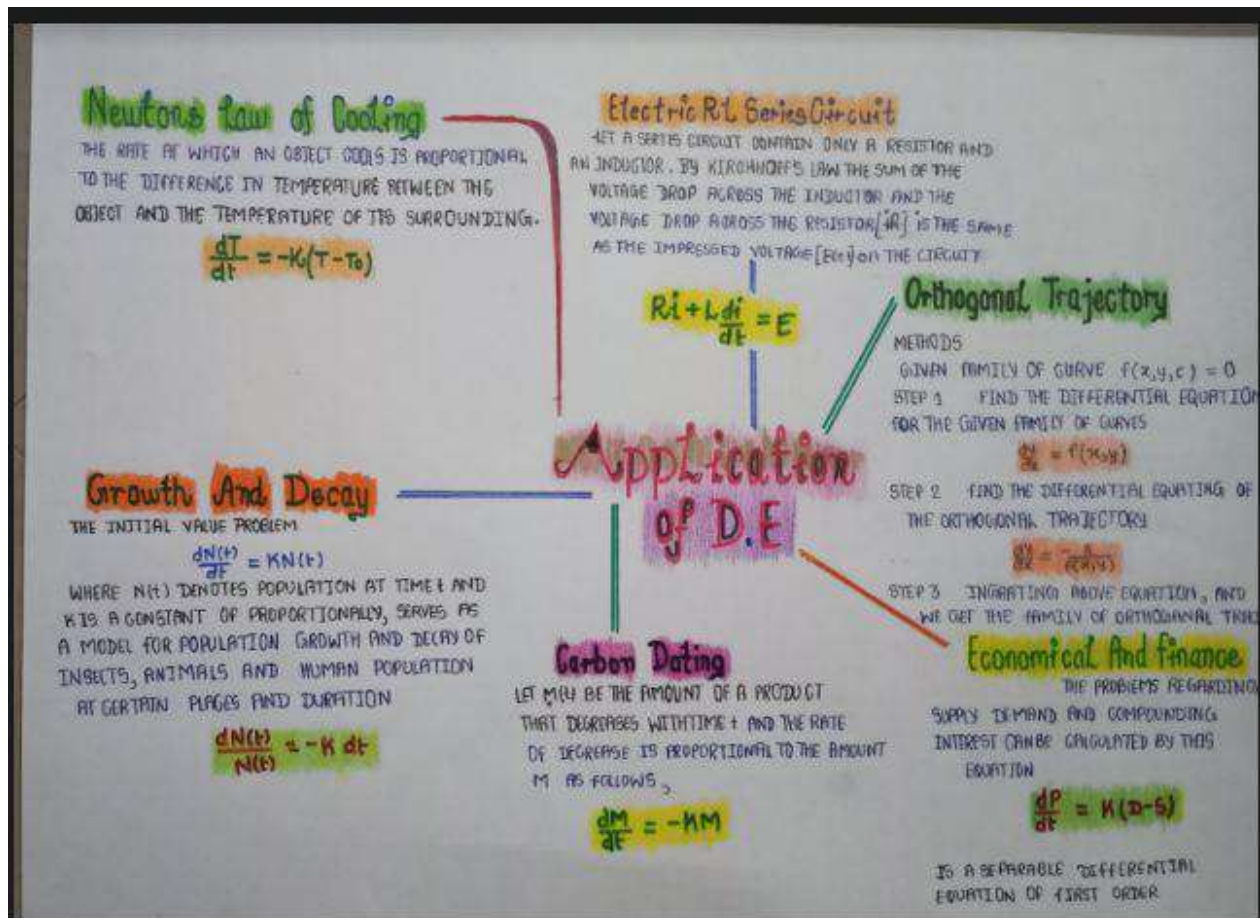 Newtons Law of Cooling
THE RATE AT WHICH AN OBJECT COOLS IS PROPORTIONAL
TO THE DIFFERENCE IN TEMPERATURE BETWEEN THE
OBJECT AND THE TEMPERATURE OF ITS SURROUNDING.
dT/dt = -K(T-T₀)
Electric RL Series Circuit
LET A SERIES CIRCUIT CONTAIN ONLY A RESISTOR AND
AN INDUCTOR. BY KIRCHHOFF'S LAW THE SUM OF THE
VOLTAGE DROP ACROSS THE INDUCTOR AND THE
VOLTAGE DROP ACROSS THE RESISTOR [iR] IS THE SAME
AS THE IMPRESSED VOLTAGE [E(t)] on THE CIRCUITY
Ri + L di/dt = E
Orthogonal Trajectory
METHODS
GIVEN FAMILY OF CURVE f(x,y,c) = 0
STEP 1 FIND THE DIFFERENTIAL EQUATION
FOR THE GIVEN FAMILY OF CURVES
dy/dx = f(x,y)
STEP 2 FIND THE DIFFERENTIAL EQUATING OF
THE ORTHOGONAL TRAJECTORY
STEP 3 INGRATING ABOVE EQUATION, AND
WE GET THE FAMILY OF ORTHOGANAL TRAJ
Application
of D.E
Growth And Decay
THE INITIAL VALUE PROBLEM
dN(t)/dt = KN(t)
WHERE N(t) DENOTES POPULATION AT TIME t AND
K IS A CONSTANT OF PROPORTIONALLY, SERVES AS
A MODEL FOR POPULATION GROWTH AND DECAY OF
INSECTS, ANIMALS AND HUMAN POPULATION
AT CERTAIN PLACES AND DURATION
dN(t)/N(t) = -K dt
Carbon Dating
LET M(t) BE THE AMOUNT OF A PRODUCT
THAT DECREASES WITH TIME t AND THE RATE
OF DECREASE IS PROPORTIONAL TO THE AMOUNT
M AS FOLLOWS,
dM/dt = -KM
Economical And finance
THE PROBLEMS REGARDING
SUPPLY DEMAND AND COMPOUNDING
INTEREST CAN BE CALCULATED BY THIS
EQUATION
dP/dt = K(D-S)
IS A SEPARABLE DIFFERENTIAL
EQUATION OF FIRST ORDER